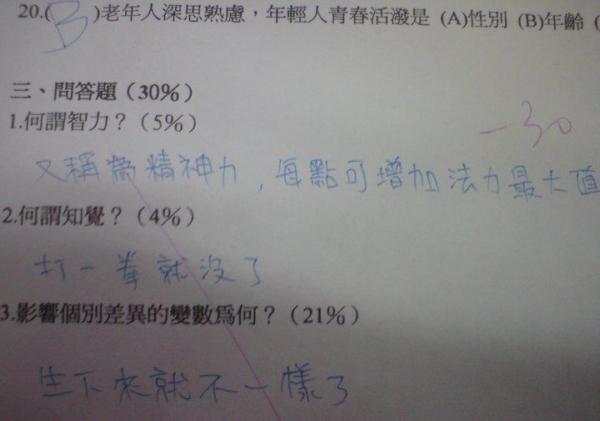 20.(B)老年人深思熟慮，年輕人青春活潑是 (A)性別 (B)年齡 (
三、問答題（30%）
1.何謂智力？（5%）
-30
又稱為精神力，每點可增加法力最大值
2.何謂知覺？（4%）
打一拳就沒了
3.影響個別差異的變數爲何？（21%）
生下來就不一樣了